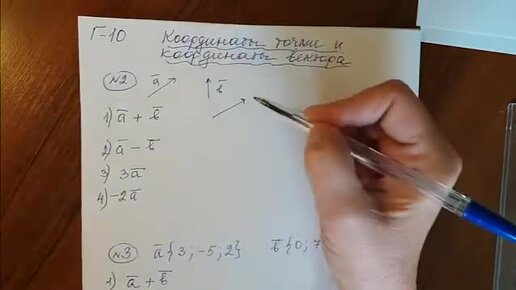 Г-10 Координаты точки и
координаты вектора
№2 a̅ b̅
1) a̅ + b̅
2) a̅ − b̅
3) 3a̅
4) −2a̅
№3 a̅{3; −5; 2} b̅{0; 7
1) a̅ + b̅